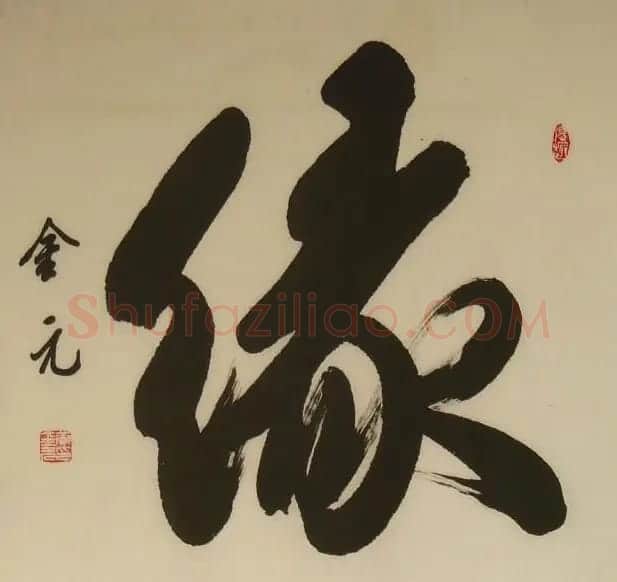 缘
金元
Shufaziliao.COM